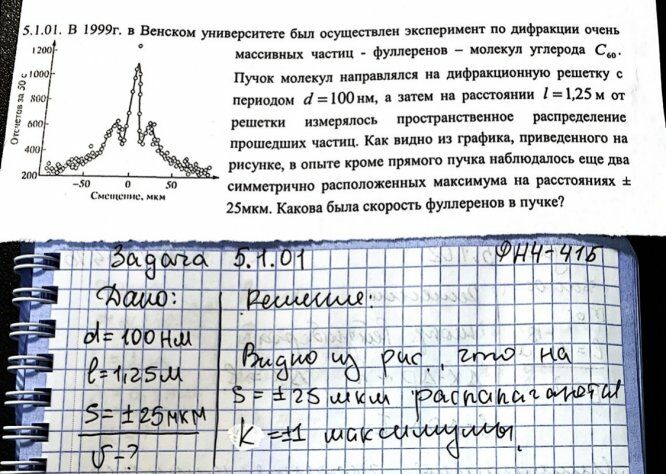 5.1.01. В 1999г. в Венском университете был осуществлен эксперимент по дифракции очень
массивных частиц - фуллеренов – молекул углерода C₆₀.
Пучок молекул направлялся на дифракционную решетку с
периодом d = 100 нм, а затем на расстоянии l = 1,25 м от
решетки измерялось пространственное распределение
прошедших частиц. Как видно из графика, приведенного на
рисунке, в опыте кроме прямого пучка наблюдалось еще два
симметрично расположенных максимума на расстояниях ±
25мкм. Какова была скорость фуллеренов в пучке?
Отсчетов за 50 с
1200
1000
800
600
400
200
−50 0 50
Смещение, мкм
Задача 5.1.01 ФН4-41Б
Дано:
d = 100 нм
l = 1,25 м
S = ± 25 мкм
v - ?
Решение:
Видно из рис., что на
S = ± 25 мкм распалагаются
K = ±1 максимумы.